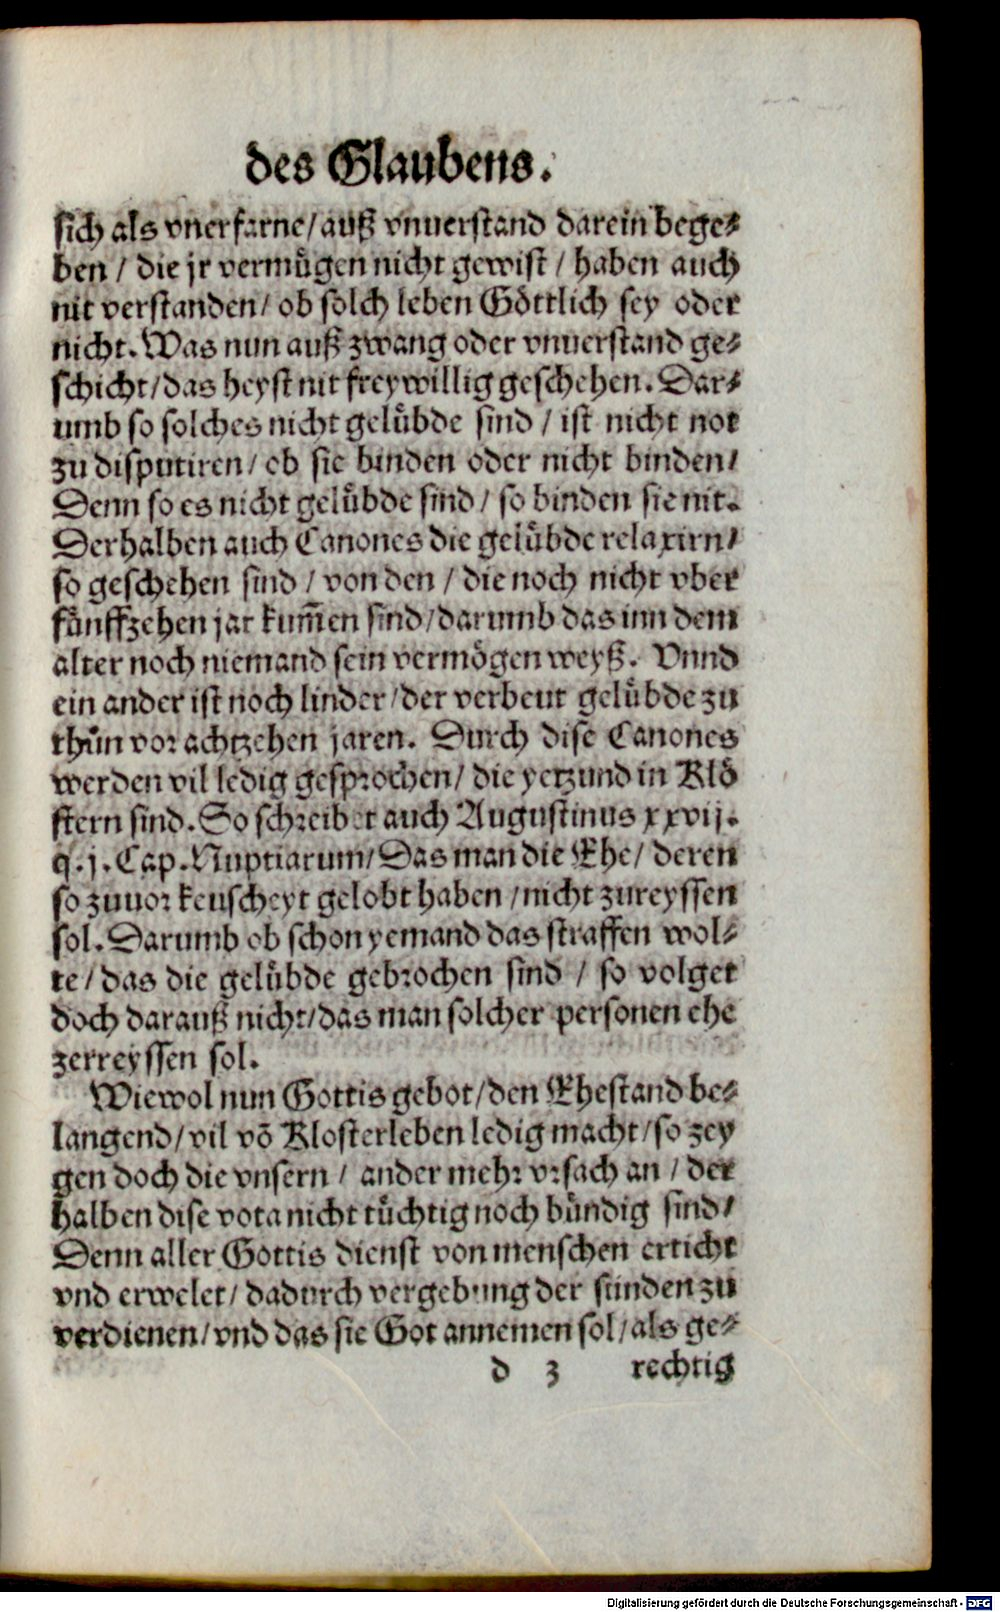 des Glaubens.
sich als vnerfarne/ auß vnuerstand darein bege⸗
ben / die jr vermuͤgen nicht gewist / haben auch
nit verstanden/ ob solch leben Goͤttlich sey oder
nicht. Was nun auß zwang oder vnuerstand ge⸗
schicht/ das heyst nit freywillig geschehen. Dar⸗
umb so solches nicht geluͤbde sind / ist nicht not
zu disputiren/ ob sie binden oder nicht binden/
Denn so es nicht geluͤbde sind/ so binden sie nit.
Derhalben auch Canones die geluͤbde relaxirn/
so geschehen sind / von den / die noch nicht vber
fuͤnffzehen jar kum̃en sind/ darumb das inn dem
alter noch niemand sein vermoͤgen weyß. Vnnd
ein ander ist noch linder/ der verbeut geluͤbde zu
thůn vor achtzehen jaren. Durch dise Canones
werden vil ledig gesprochen/ die yetzund in Kloͤ
stern sind. So schreibet auch Augustinus xxvij.
q. j. Cap. Nuptiarum/ Das man die Ehe/ deren
so zuuor keuscheyt gelobt haben /nicht zureyssen
sol. Darumb ob schon yemand das straffen wol⸗
te/ das die geluͤbde gebrochen sind / so volget
doch darauß nicht/ das man solcher personen ehe
zerreyssen sol.
Wiewol nun Gottis gebot/ den Ehestand be⸗
langend/ vil võ Klosterleben ledig macht/ so zey
gen doch die vnsern / ander mehr vrsach an / der
halben dise vota nicht tuͤchtig noch buͤndig sind/
Denn aller Gottis dienst von menschen erticht
vnd erwelet/ dadurch vergebung der sunden zu
verdienen/ vnd das sie Got annemen sol/ als ge⸗
d 3 rechtig
Digitalisierung gefördert durch die Deutsche Forschungsgemeinschaft - DFG